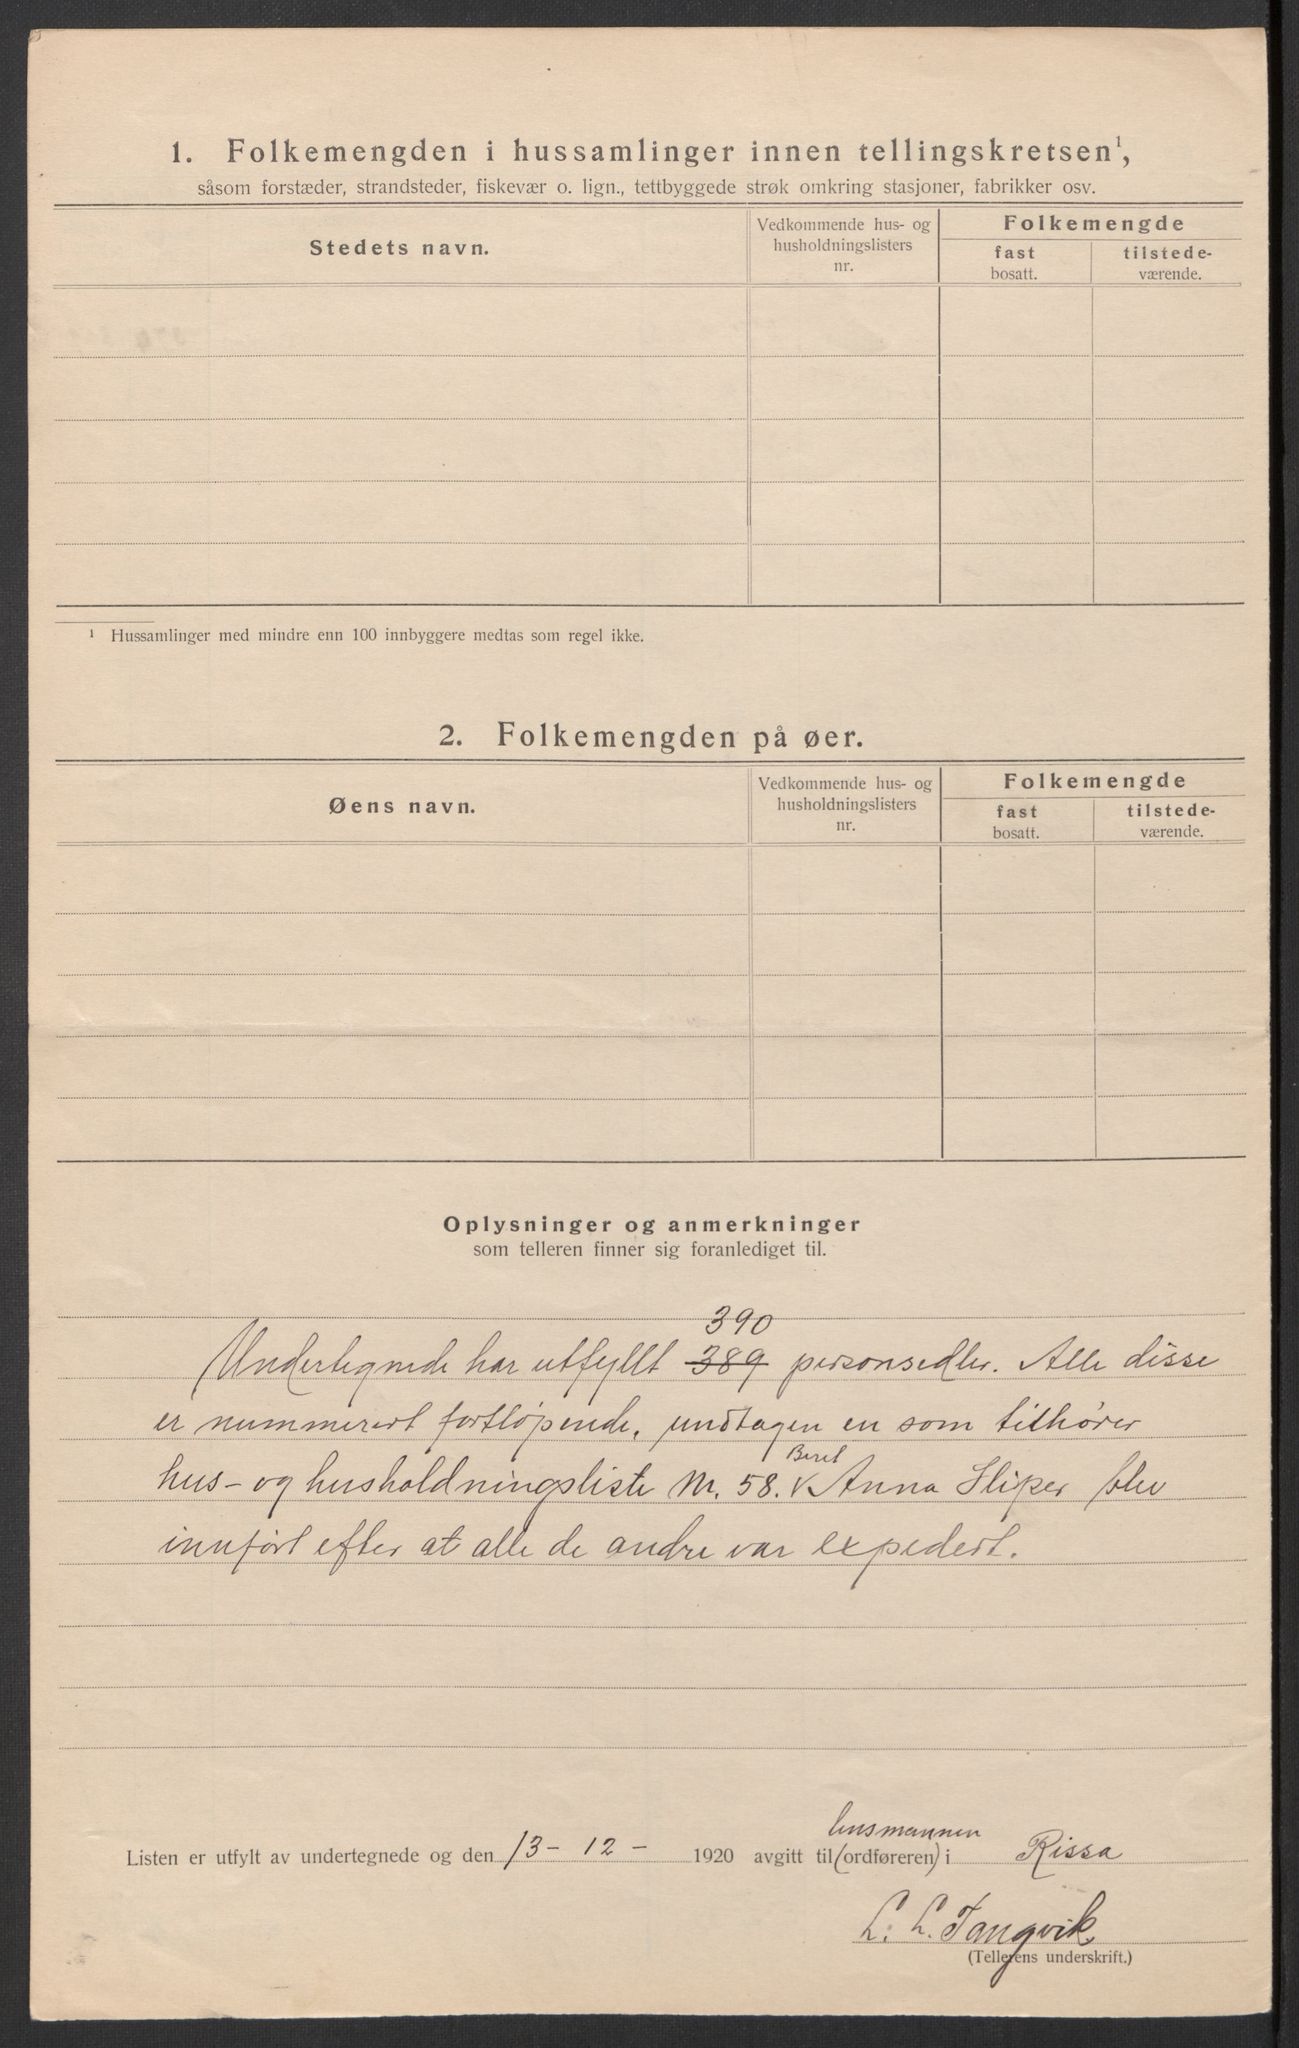 1. Folkemengden i hussamlinger innen tellingskretsen¹,
såsom forstæder, strandsteder, fiskevær o. lign., tettbyggede strøk omkring stasjoner, fabrikker osv.
Stedets navn.
Vedkommende hus- og
husholdningslisters
nr.
Folkemengde
fast
bosatt.
tilstede-
værende.
¹ Hussamlinger med mindre enn 100 innbyggere medtas som regel ikke.
2. Folkemengden på øer.
Øens navn.
Vedkommende hus- og
husholdningslisters
nr.
Folkemengde
fast
bosatt.
tilstede-
værende.
Oplysninger og anmerkninger
som telleren finner sig foranlediget til.
390
Undertegnede har utfyllt 389 personsedler. Alle disse
er nummerert fortløpende, undtagen en som tilhører
Beret
hus- og husholdningsliste Nr. 58. V Anna Sliper blev
innført efter at alle de andre var expedert.
Listen er utfylt av undertegnede og den 13-12- 1920 avgitt til (ordføreren) i Rissa
L. L. Tangvik
(Tellerens underskrift.)